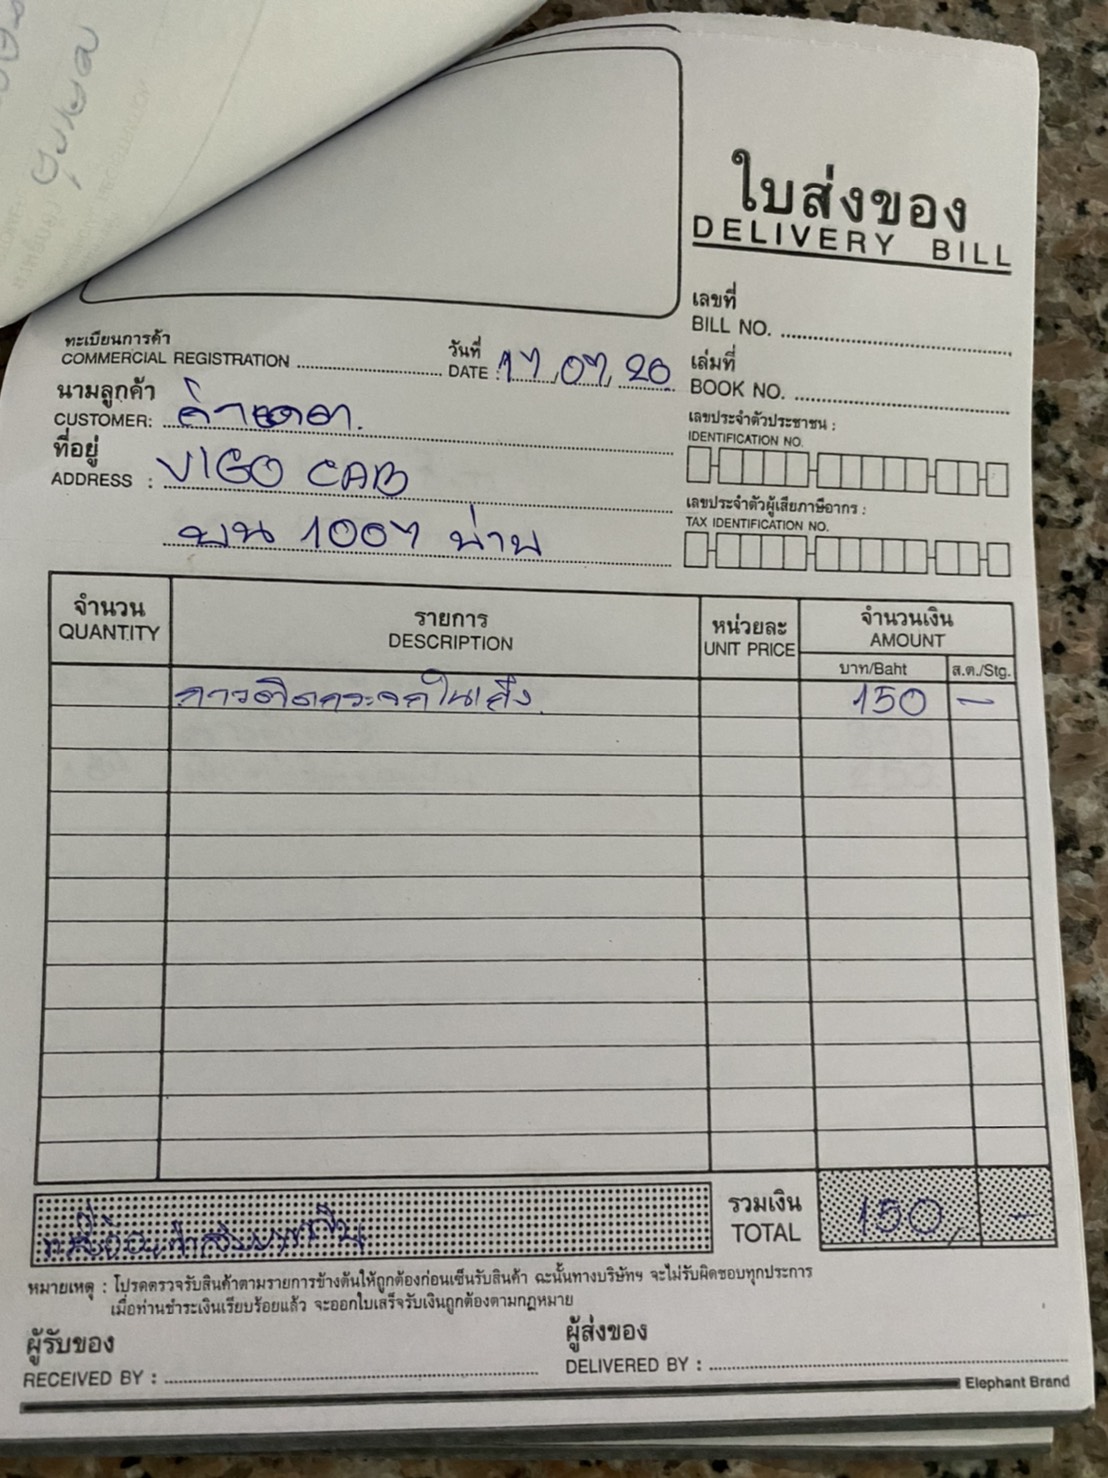 ใบส่งของ
DELIVERY BILL
เลขที่
BILL NO.
ทะเบียนการค้า
COMMERCIAL REGISTRATION
วันที่
DATE : 17,07,20
เล่มที่
BOOK NO.
นามลูกค้า
CUSTOMER:
ที่อยู่
ADDRESS : VIGO CAB
บน 1007 น่าน
เลขประจำตัวประชาชน :
IDENTIFICATION NO.
เลขประจำตัวผู้เสียภาษีอากร :
TAX IDENTIFICATION NO.
จำนวน รายการ หน่วยละ จำนวนเงิน
QUANTITY DESCRIPTION UNIT PRICE AMOUNT
บาท/Baht ส.ต./Stg.
กาวติดกระจกในเก๋ง 150 -
รวมเงิน
TOTAL 150 -
หมายเหตุ : โปรดตรวจรับสินค้าตามรายการข้างต้นให้ถูกต้องก่อนเซ็นรับสินค้า ฉะนั้นทางบริษัทฯ จะไม่รับผิดชอบทุกประการ
เมื่อท่านชำระเงินเรียบร้อยแล้ว จะออกใบเสร็จรับเงินถูกต้องตามกฎหมาย
ผู้รับของ
RECEIVED BY :
ผู้ส่งของ
DELIVERED BY :
Elephant Brand